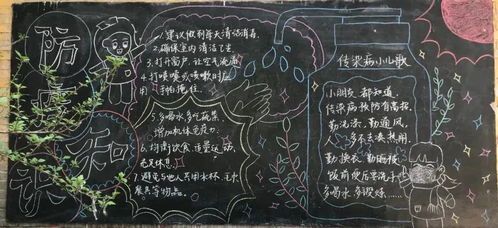 防疫
知识
1.建议做到每天清洁消毒。
2.确保室内清洁卫生
3.打开窗户，让空气流通
4.打喷嚏或咳嗽时应
用手帕掩住。
5.多喝水多吃蔬菜
增加机体免疫力。
6.均衡饮食 适量运动，
充足休息。
7.避免与他人共用水杯、毛巾
餐具等物品。
传染病小儿歌
小朋友，都知道，
传染病预防有高招，
勤洗澡，勤通风，
人多不去凑热闹。
勤换衣、勤晒被
饭前便后要洗手
多喝水多锻炼……